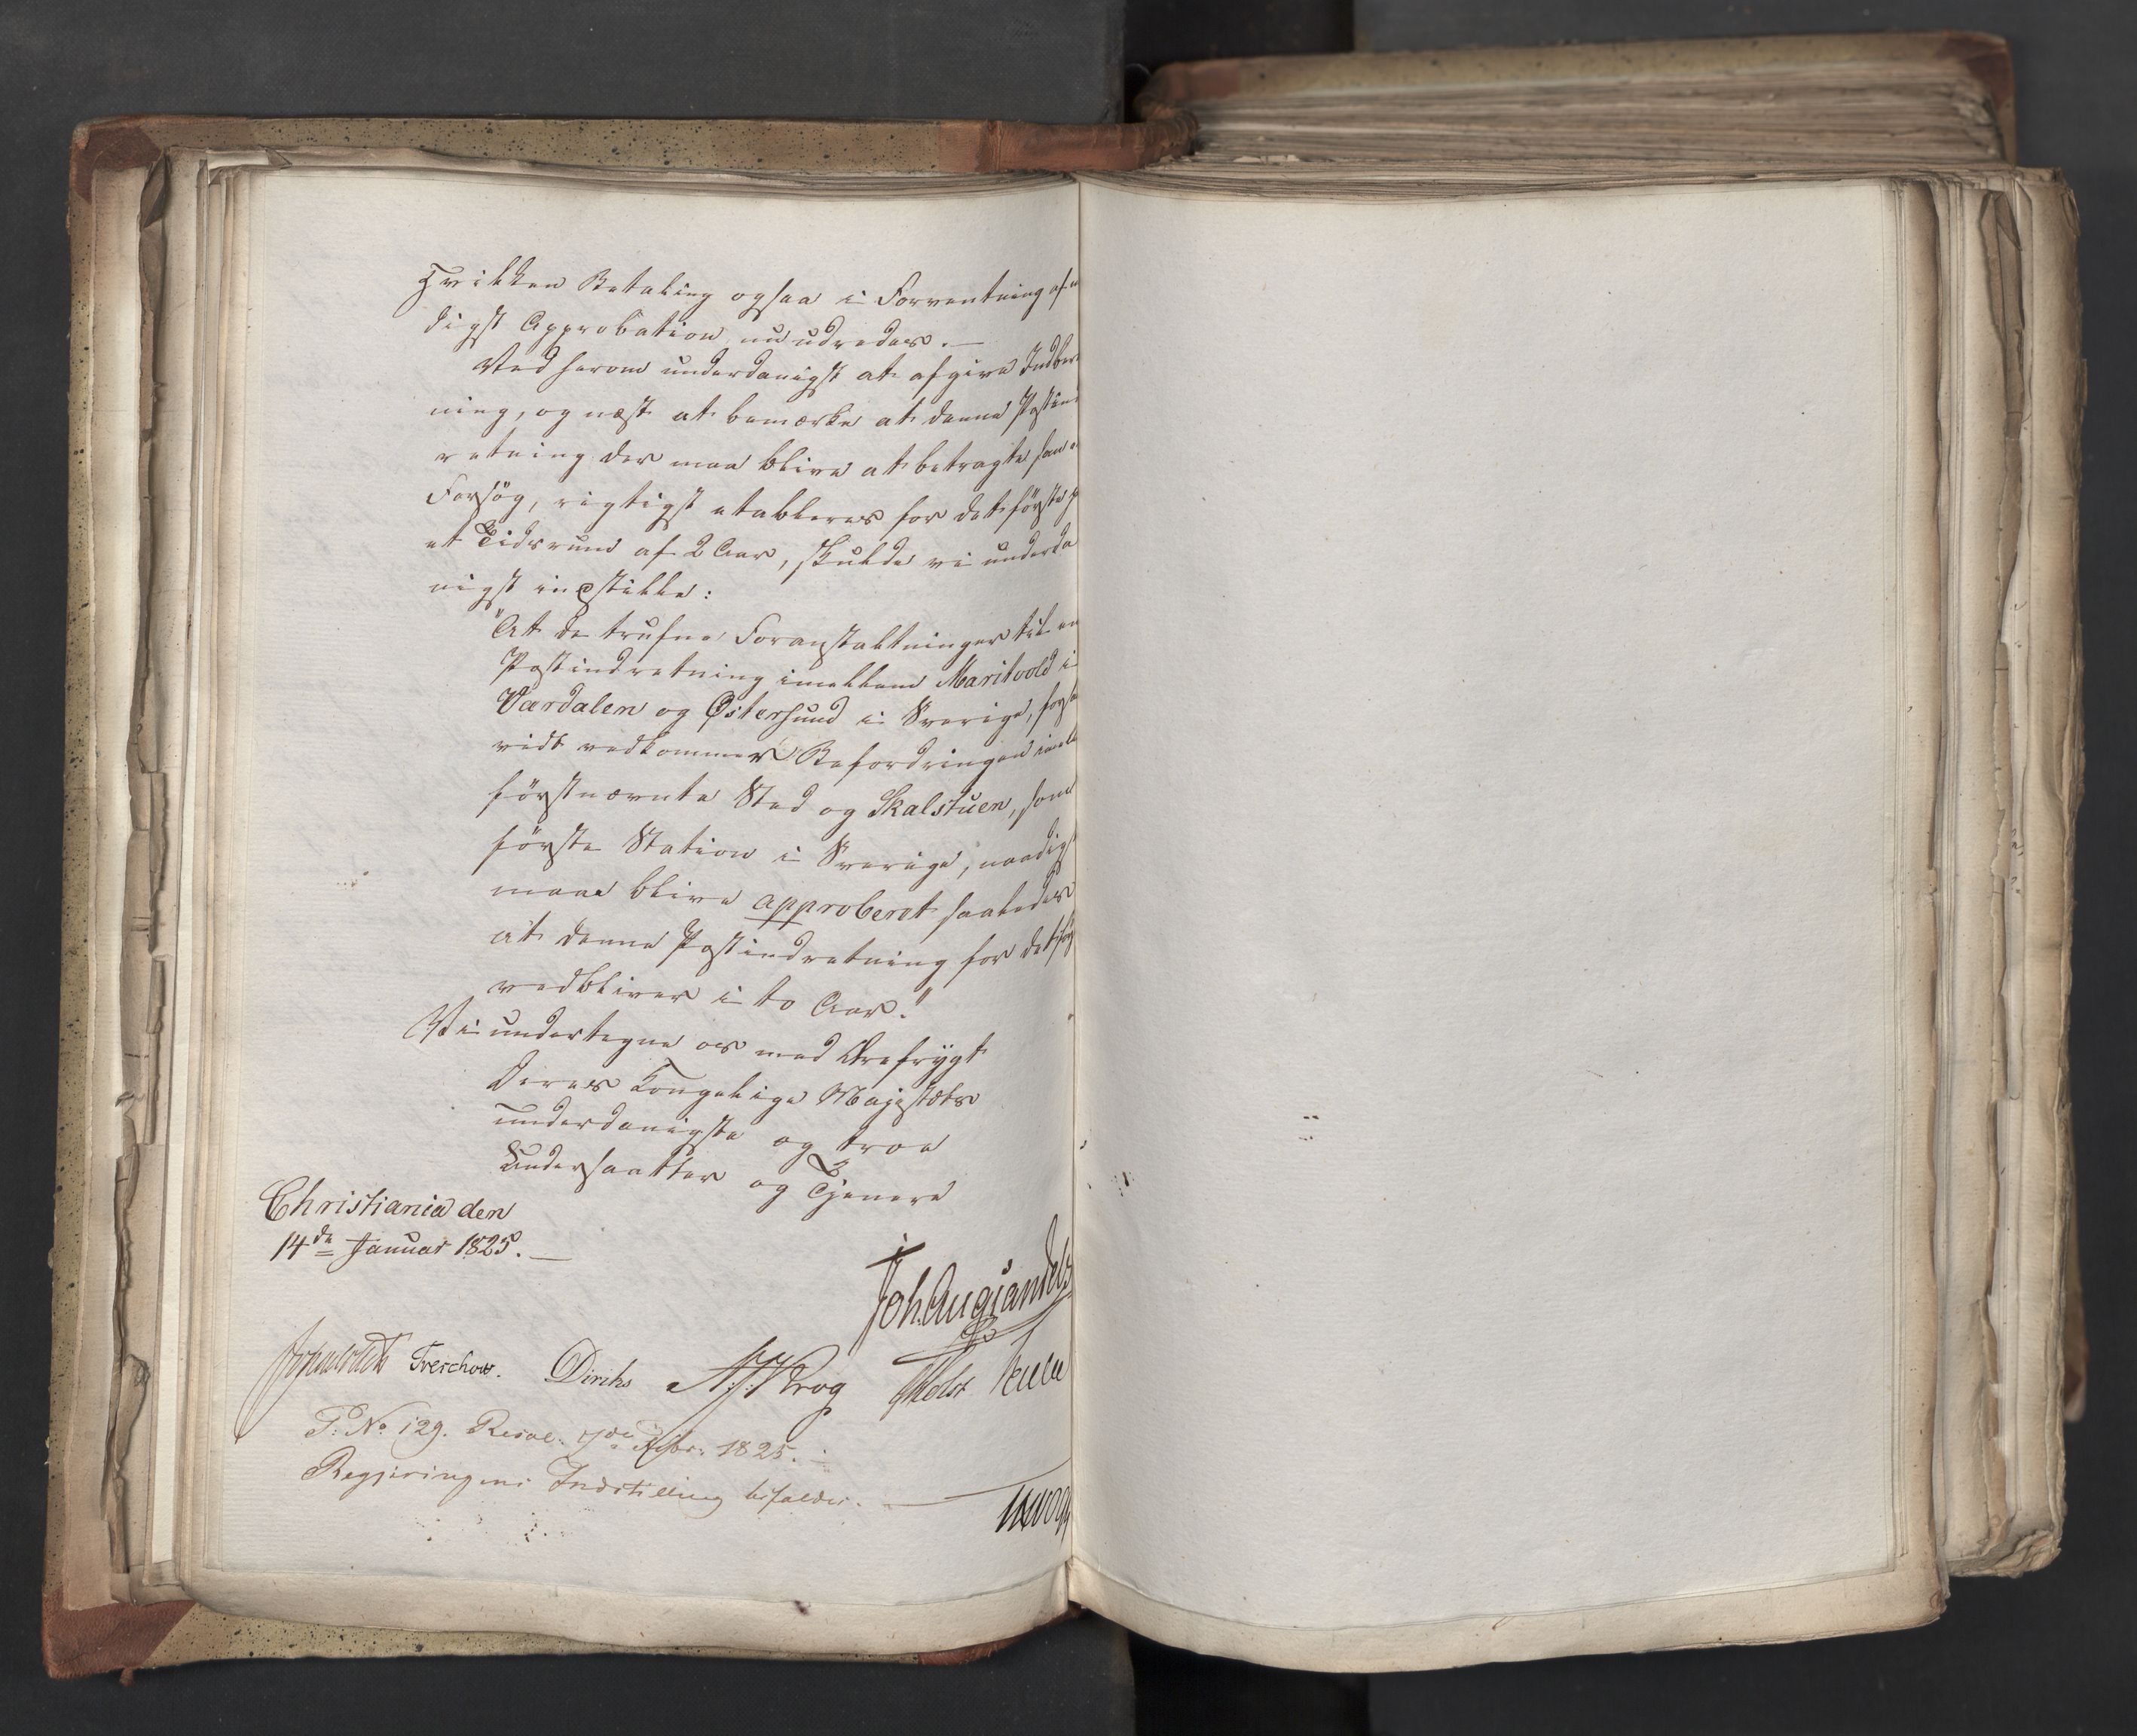 Hvilken Betaling ogsaa i Forventning af n
digst Approbation nu udredes. —
Ved herom underdanigst at afgive Indber
ning, og næst at bemærke at denne Postind
retning der maa blive at betragte som e
Forsøg, rigtigst etableres for det første p
et Tidsrum af 2 Aar, skulde vi underda
nigst indstille:
"At de trufne Foranstaltninger til en
Postindretning imellem Maritvold i
Værdalen og Østersund i Sverige, forsaa
vidt vedkommer Befordringen imel
førstnævnte Sted og Skalstuen, som
første Station i Sverige, naadigst
maae blive approberet saaledes
at denne Postindretning for det før
vedbliver i to Aar."
Vi undertegne os med Ærefrygt
Deres Kongelige Majestæts
underdanigste og troe
Undersaatter og Tjenere
Christiania den
14de Januar 1825. —
Joh. Aug Sandels
Treschow. Diriks Krog Holst
P: No 129. Resol. 7de Febr: 1825. —
Regjeringens Indstilling bifaldes. —